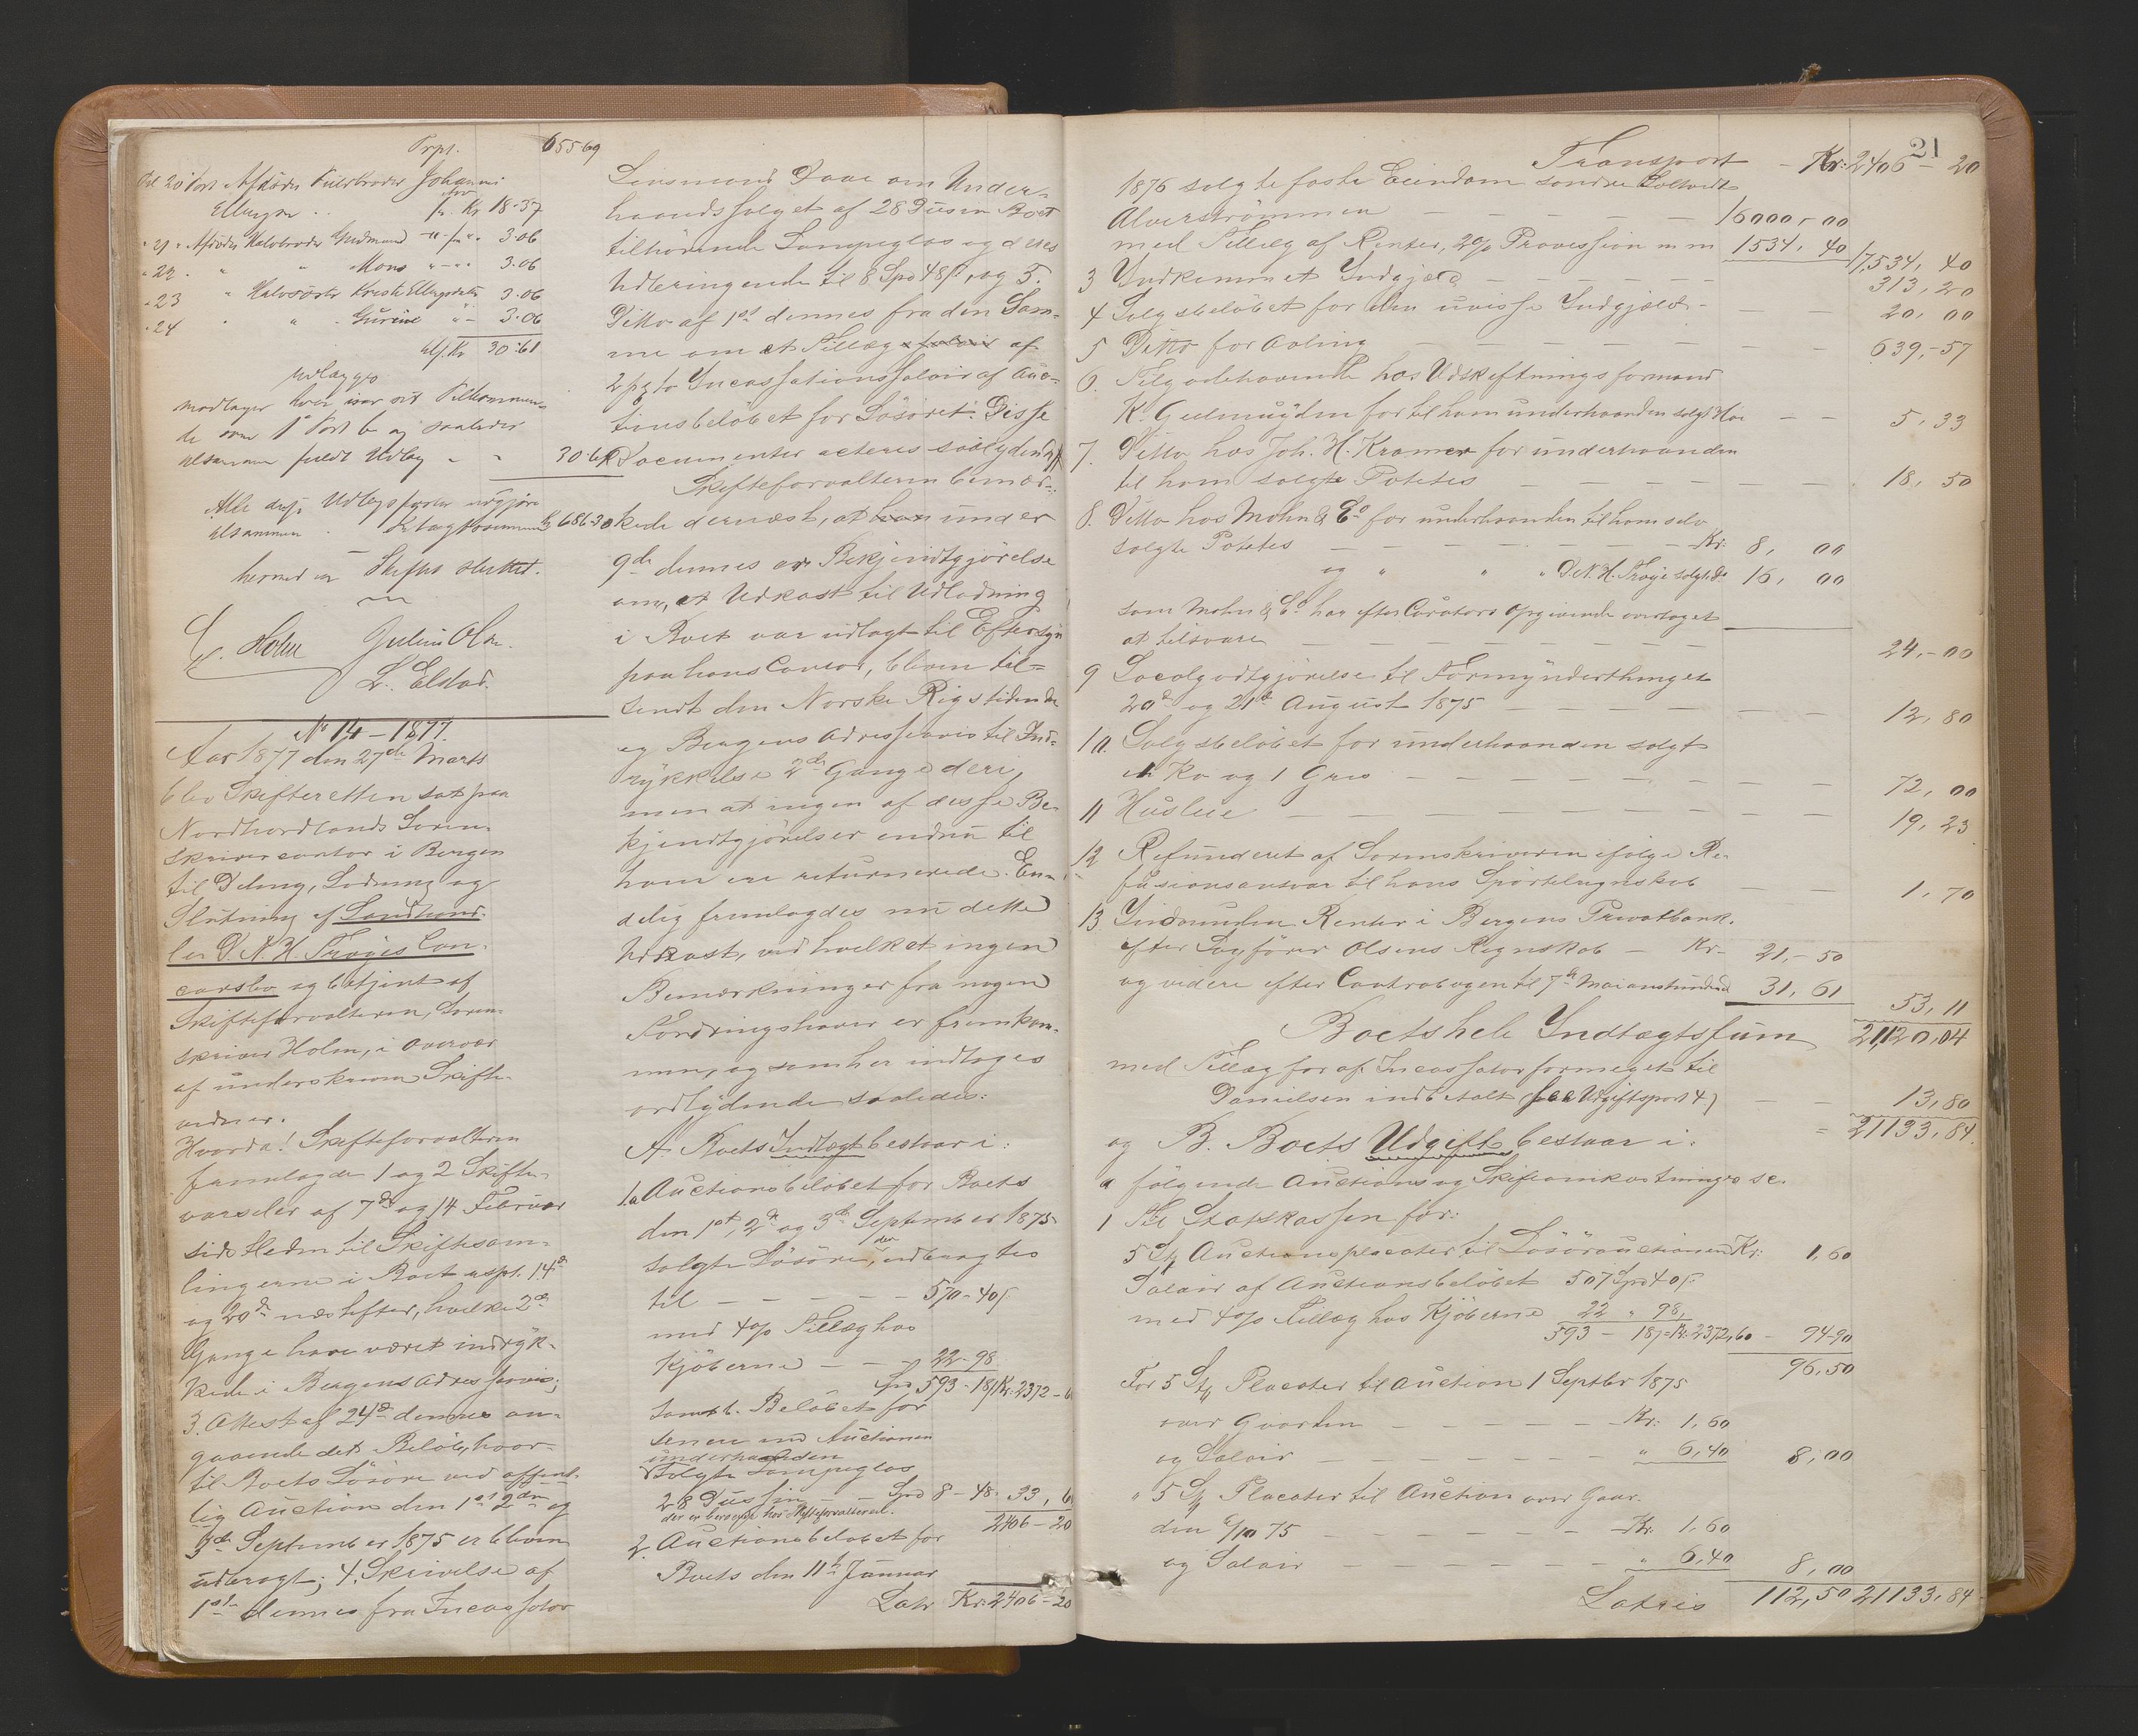 Trpt. 655.69
Til 20 Post Afdødes Fuldbroder Johannes
Ellingsen . . Kr. 18.37
" 21 " Afdødes Halvbroder Gudmund " - " 3.06
" 22 . " " Mons " - " 3.06
" 23 " Halvsøster Kirsti Ellingsdatter 3.06
" 24 " " Gurine " - 3.06
Kr 30.61
Udlægges
modtager hver især sit Tilkommen-
de som 1 Post b og saaledes
tilsammen fuldt Udlæg " " 30.61
Alle disse Udlægsposter udgjøre
tilsammen . 686.30
hermed er Skiftet sluttet.
Holm Julius Olsen.
L. Elstad.
No 14 - 1877.
Aar 1877 den 27de Marts
blev Skifteretten sat paa
Nordhordlands Soren-
skrivercontor i Bergen
til Deling, Lodning og
Slutning af Landhand-
ler D. N. H. Trøyes Con-
cursbo og betjent af
Skifteforvalteren, Soren-
skriver Holm, i Overvær
af underskrevne Skifte-
vidner.
Hvorda! Skifteforvalteren
fremlagde 1 og 2 Skifte-
varsler af 7de og 14 Februar
sidstleden til Skiftesam-
lingerne i Boet respt. 14de
og 20de næstefter, hvilke 2de
Gange have været indryk-
kede i Bergens Adresseavis;
3. Attest af 24de dennes an-
gaaende det Beløb, hvor-
til Boets Løsøre ved offent-
lig Auction den 1ste 2den og
3die September 1875 er bleven
udbragt; 4. Skrivelse af
1ste dennes fra Incassator
Lensmand Daae om Under-
haandssalget af 28 Dusin Boet
tilhørende Lampeglas og deres
Udbringende til 8 Spd 48 ß, og 5.
Ditto af 1ste dennes fra den Sam-
me om et Tillæg salair af
2 p % to Incassationssalair af Auc-
tionsbeløbet for Løsøret. Disse
Documenter acteres saalydende
Skifteforvalteren bemær-
kede dernæst, at han under
9de dennes er Bekjendtgjørelse
om, at Udkast til Udlodning
i Boet var udlagt til Eftersyn
paa hans Contor, bleven til-
sendt den Norske Rigstidende
og Bergens Adresseavis til Ind-
rykkelse 2de Gange deri,
men at ingen af disse Be-
kjendtgjørelser endnu til
ham ere returnerede. En-
delig fremlagdes nu dette
Udkast, ved hvilket ingen
Bemærkninger fra nogen
Fordringshaver er fremkom-
men, og som her indtages
ordlydende saaledes:
A. Boets Indtægt bestaar i:
1.a Auctionsbeløbet for Boets
den 1ste, 2de og 3de September 1875
solgte Løsøre, der udbragtes
til — — — — — 570-40 ß.
med 4 % Tillæg hos
Kjøberne — — — 22-98
Spd 593-18 ß Kr: 2372-60
samt b. Beløbet for
senere end Auctionen
underhaanden
solgte Lampeglas
28 Dussin — Spd 8-48. 33,60
der er beroende hos Skifteforvalteren.
2406-20
2. Auctionsbeløbet for
Boets den 11te Januar
Latr. Kr: 2406-20
21
Transport — Kr: 2406-20
1876 solgte faste Eiendom søndre Soltvedt
Alverstrømmen — — — — — 16000-00
med Tillæg af Renter, 2 % Provission m m 1534,40 17,534,40
3 Indkommet Indgjæld — — — — 313,20
4 Salgsbeløbet for den uvisse Indgjæld — — — 20,00
5 Ditto for Avling — — — — — — 639,57
6. Tilgodehavende hos Udskiftningsformand
K. Gulmuyden for til ham underhaanden solgt Hø — — 5,33
7. Ditto hos Joh. H. Kramer for underhaanden
til ham solgte Potetes — — — — — — 18,50
8. Ditto hos Mohn & Co for underhaanden til ham selv
solgte Potetes — — — — — Kr: 8,00
og " " " D. N. H. Trøye solgte do 16,00
som Mohn & Co har efter Curators Opgivende overtaget
at tilsvare — — — — — — 24,-00
9 Localgodtgjørelse til Formynderthinget
20de og 21de August 1875 — — — — — 12,80
10. Salgsbeløbet for underhaanden solgt
1 Ko og 1 Gris — — — — — — 72,00
11 Husleie — — — — — — — 19,23
12 Refunderet af Sorenskriveren ifølge Re-
fusionsansvar til hans Sportelregnskab — — 1,70
13 Indvundne Renter i Bergens Privatbank.
efter Sagfører Olsens Regnskab — Kr. 21,-50
og videre efter Contrabogen til 7de Mai anstundende 31,61 53,11
Boets hele Indtægtssum 21,120,04
med Tillæg for af Incassator formeget til
Danielsen indbetalt (see Udgiftspost 4) — — 13,80
= 21133,84.
og B. Boets Udgift bestaar i:
a følgende Auctions og Skifteomkostninger se.
1 Til Statskassen for:
5 Stk Auctionsplacater til Løsøreauctionen Kr: 1,60
Salair af Auctionsbeløbet 507 Spd 40 ß.
med 4 % Tillæg hos Kjøberne 22 " 98,
593 - 18 ß = Kr: 2372,60 - 94-90
96,50
For 5 Stk Placater til Auction 1 Septbr 1875
over Gaarden — — — — Kr: 1,60
og Salair — — — — — " 6,40 8,00
" 5 Stk Placater til Auction over Gaar-
den 6/10 75 — — — — — Kr: 1,60
og Salair — — — — — " 6,40 8,00
Lateris 112,50 21133,84